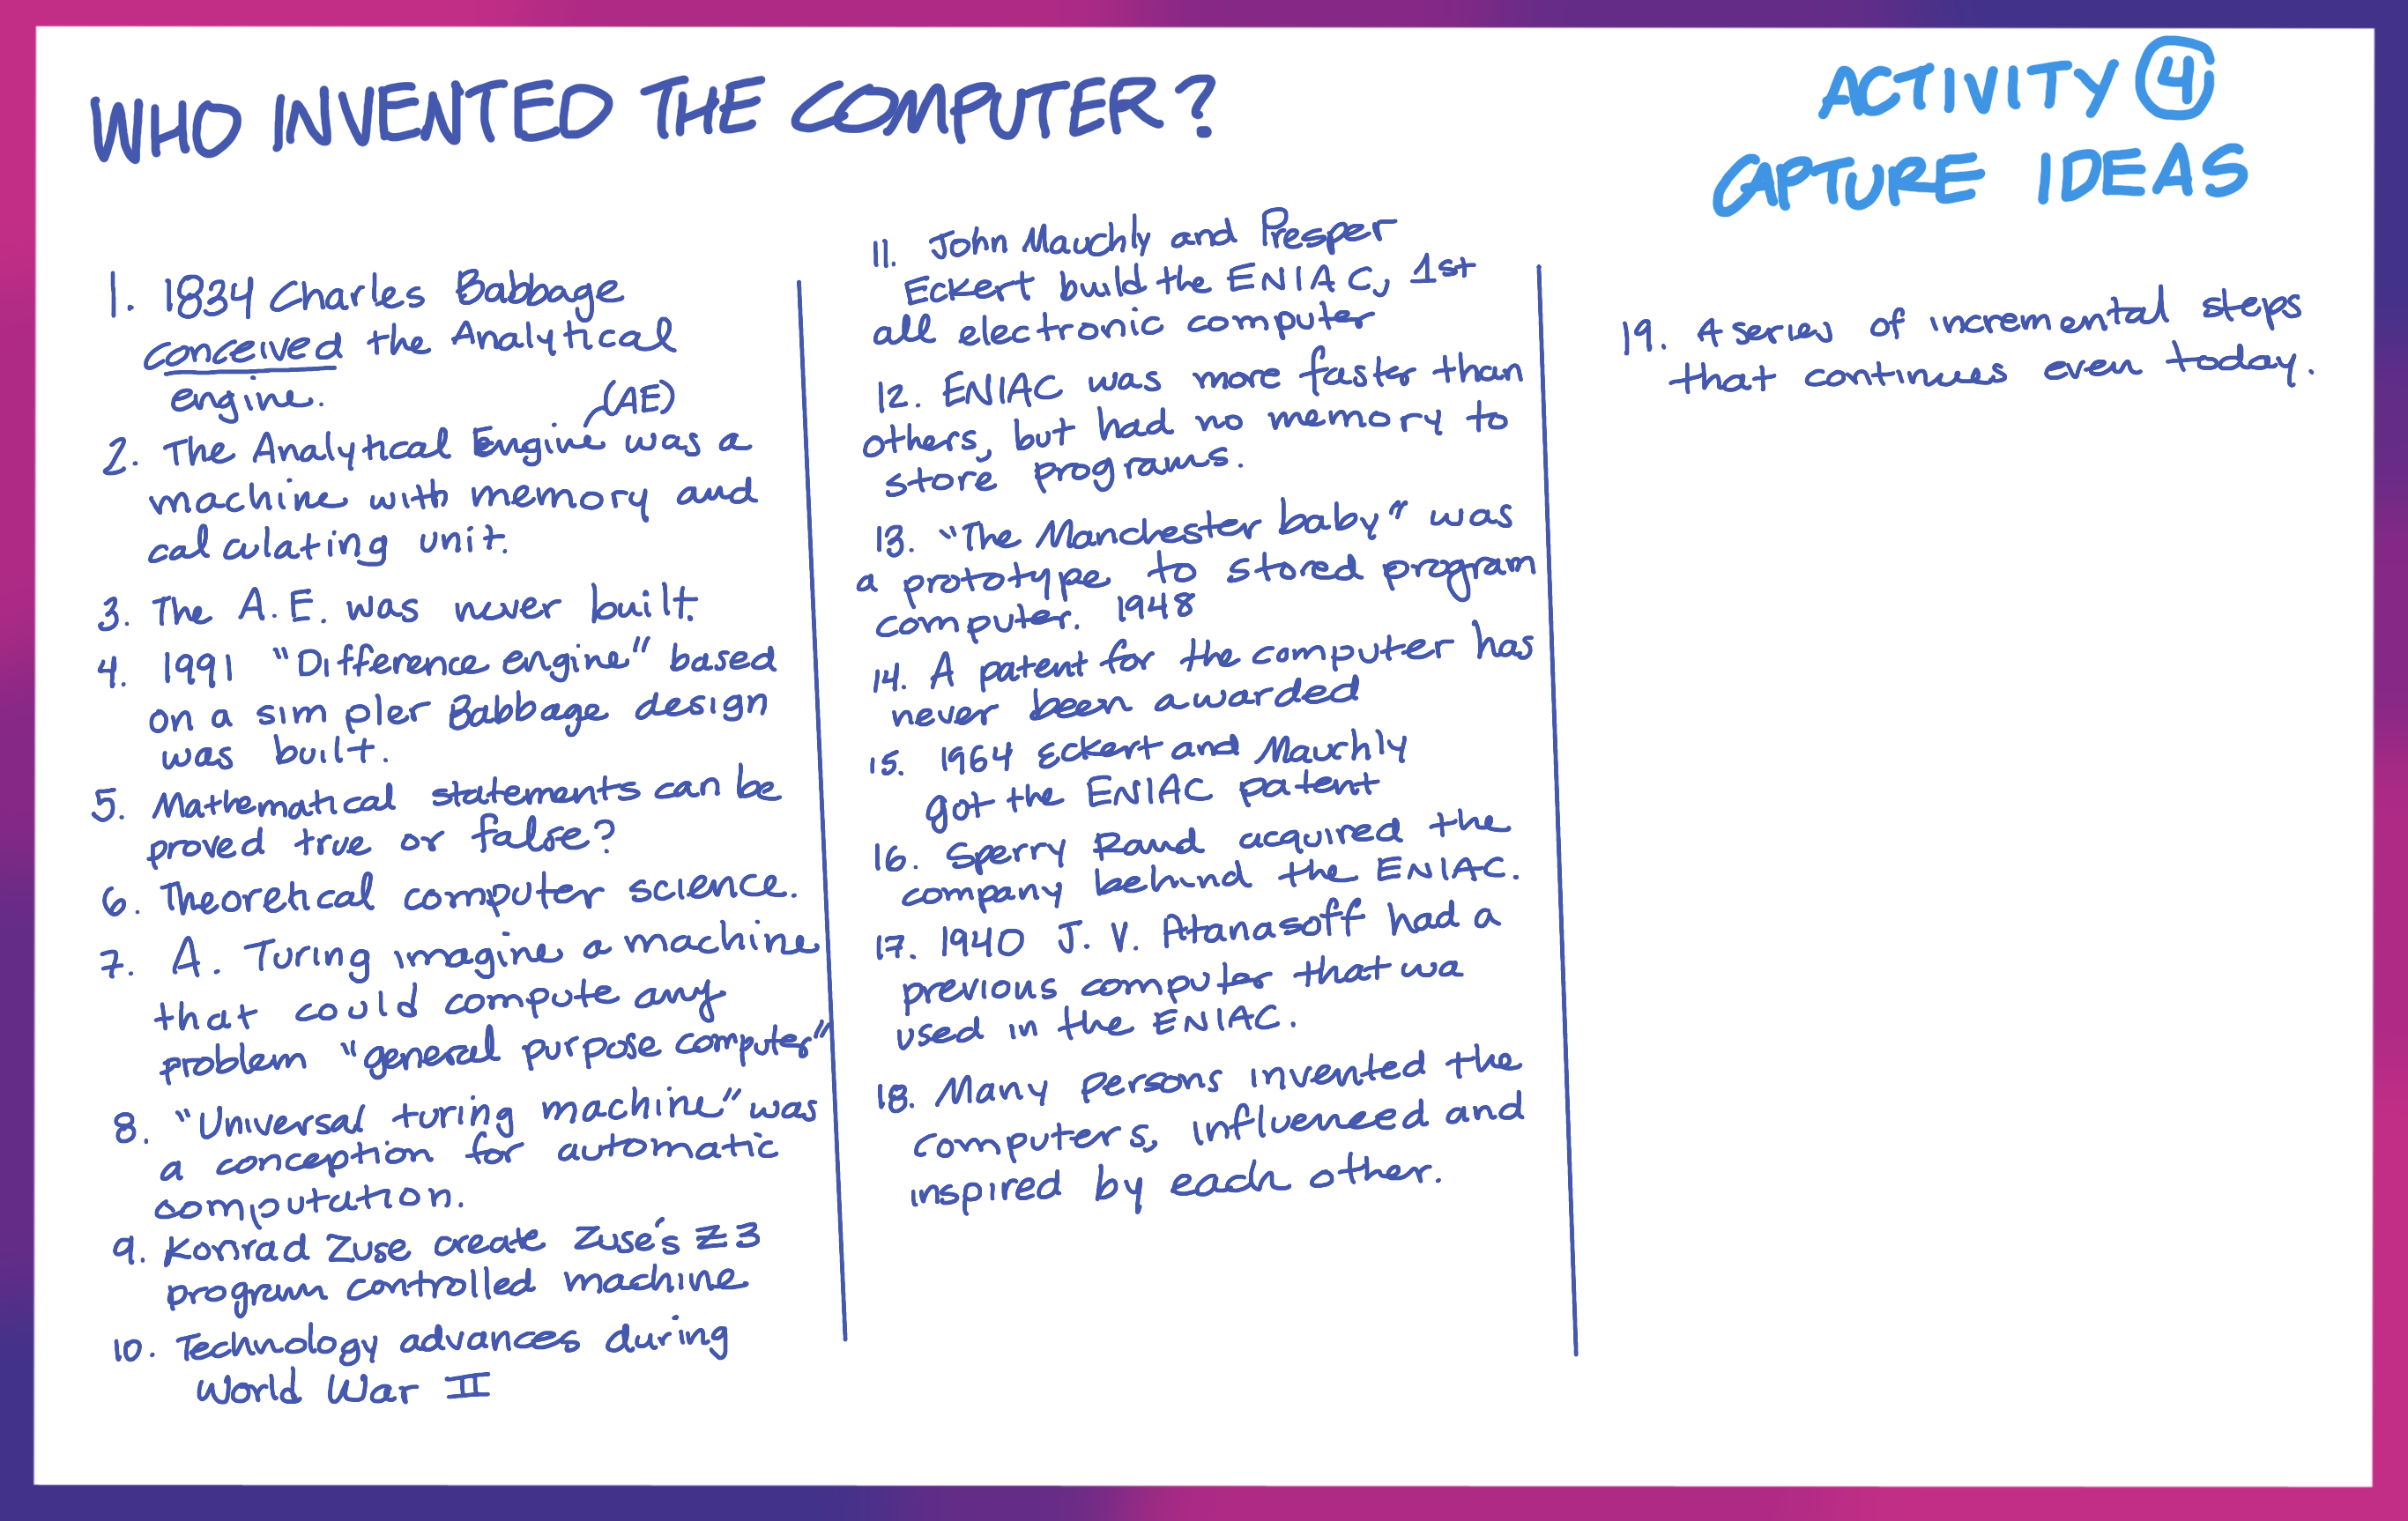 WHO INVENTED THE COMPUTER?
ACTIVITY 4
CAPTURE IDEAS
1. 1834 Charles Babbage
conceived the Analytical
engine.
(AE)
2. The Analytical Engine was a
machine with memory and
calculating unit.
3. The A.E. was never built.
4. 1991 "Difference engine" based
on a simpler Babbage design
was built.
5. Mathematical statements can be
proved true or false?
6. Theoretical computer science.
7. A. Turing imagine a machine
that could compute any
problem "general purpose computer"
8. "Universal turing machine" was
a conception for automatic
computation.
9. Konrad Zuse create Zuse's Z3
program controlled machine
10. Technology advances during
World War II
11. John Mauchly and Presper
Eckert build the ENIAC, 1st
all electronic computer
12. ENIAC was more faster than
others, but had no memory to
store programs.
13. "The Manchester baby" was
a prototype to stored program
computer. 1948
14. A patent for the computer has
never been awarded
15. 1964 Eckert and Mauchly
got the ENIAC patent
16. Sperry Rand acquired the
company behind the ENIAC.
17. 1940 J. V. Atanasoff had a
previous computer that wa
used in the ENIAC.
18. Many persons invented the
computers, influenced and
inspired by each other.
19. A series of incremental steps
that continues even today.